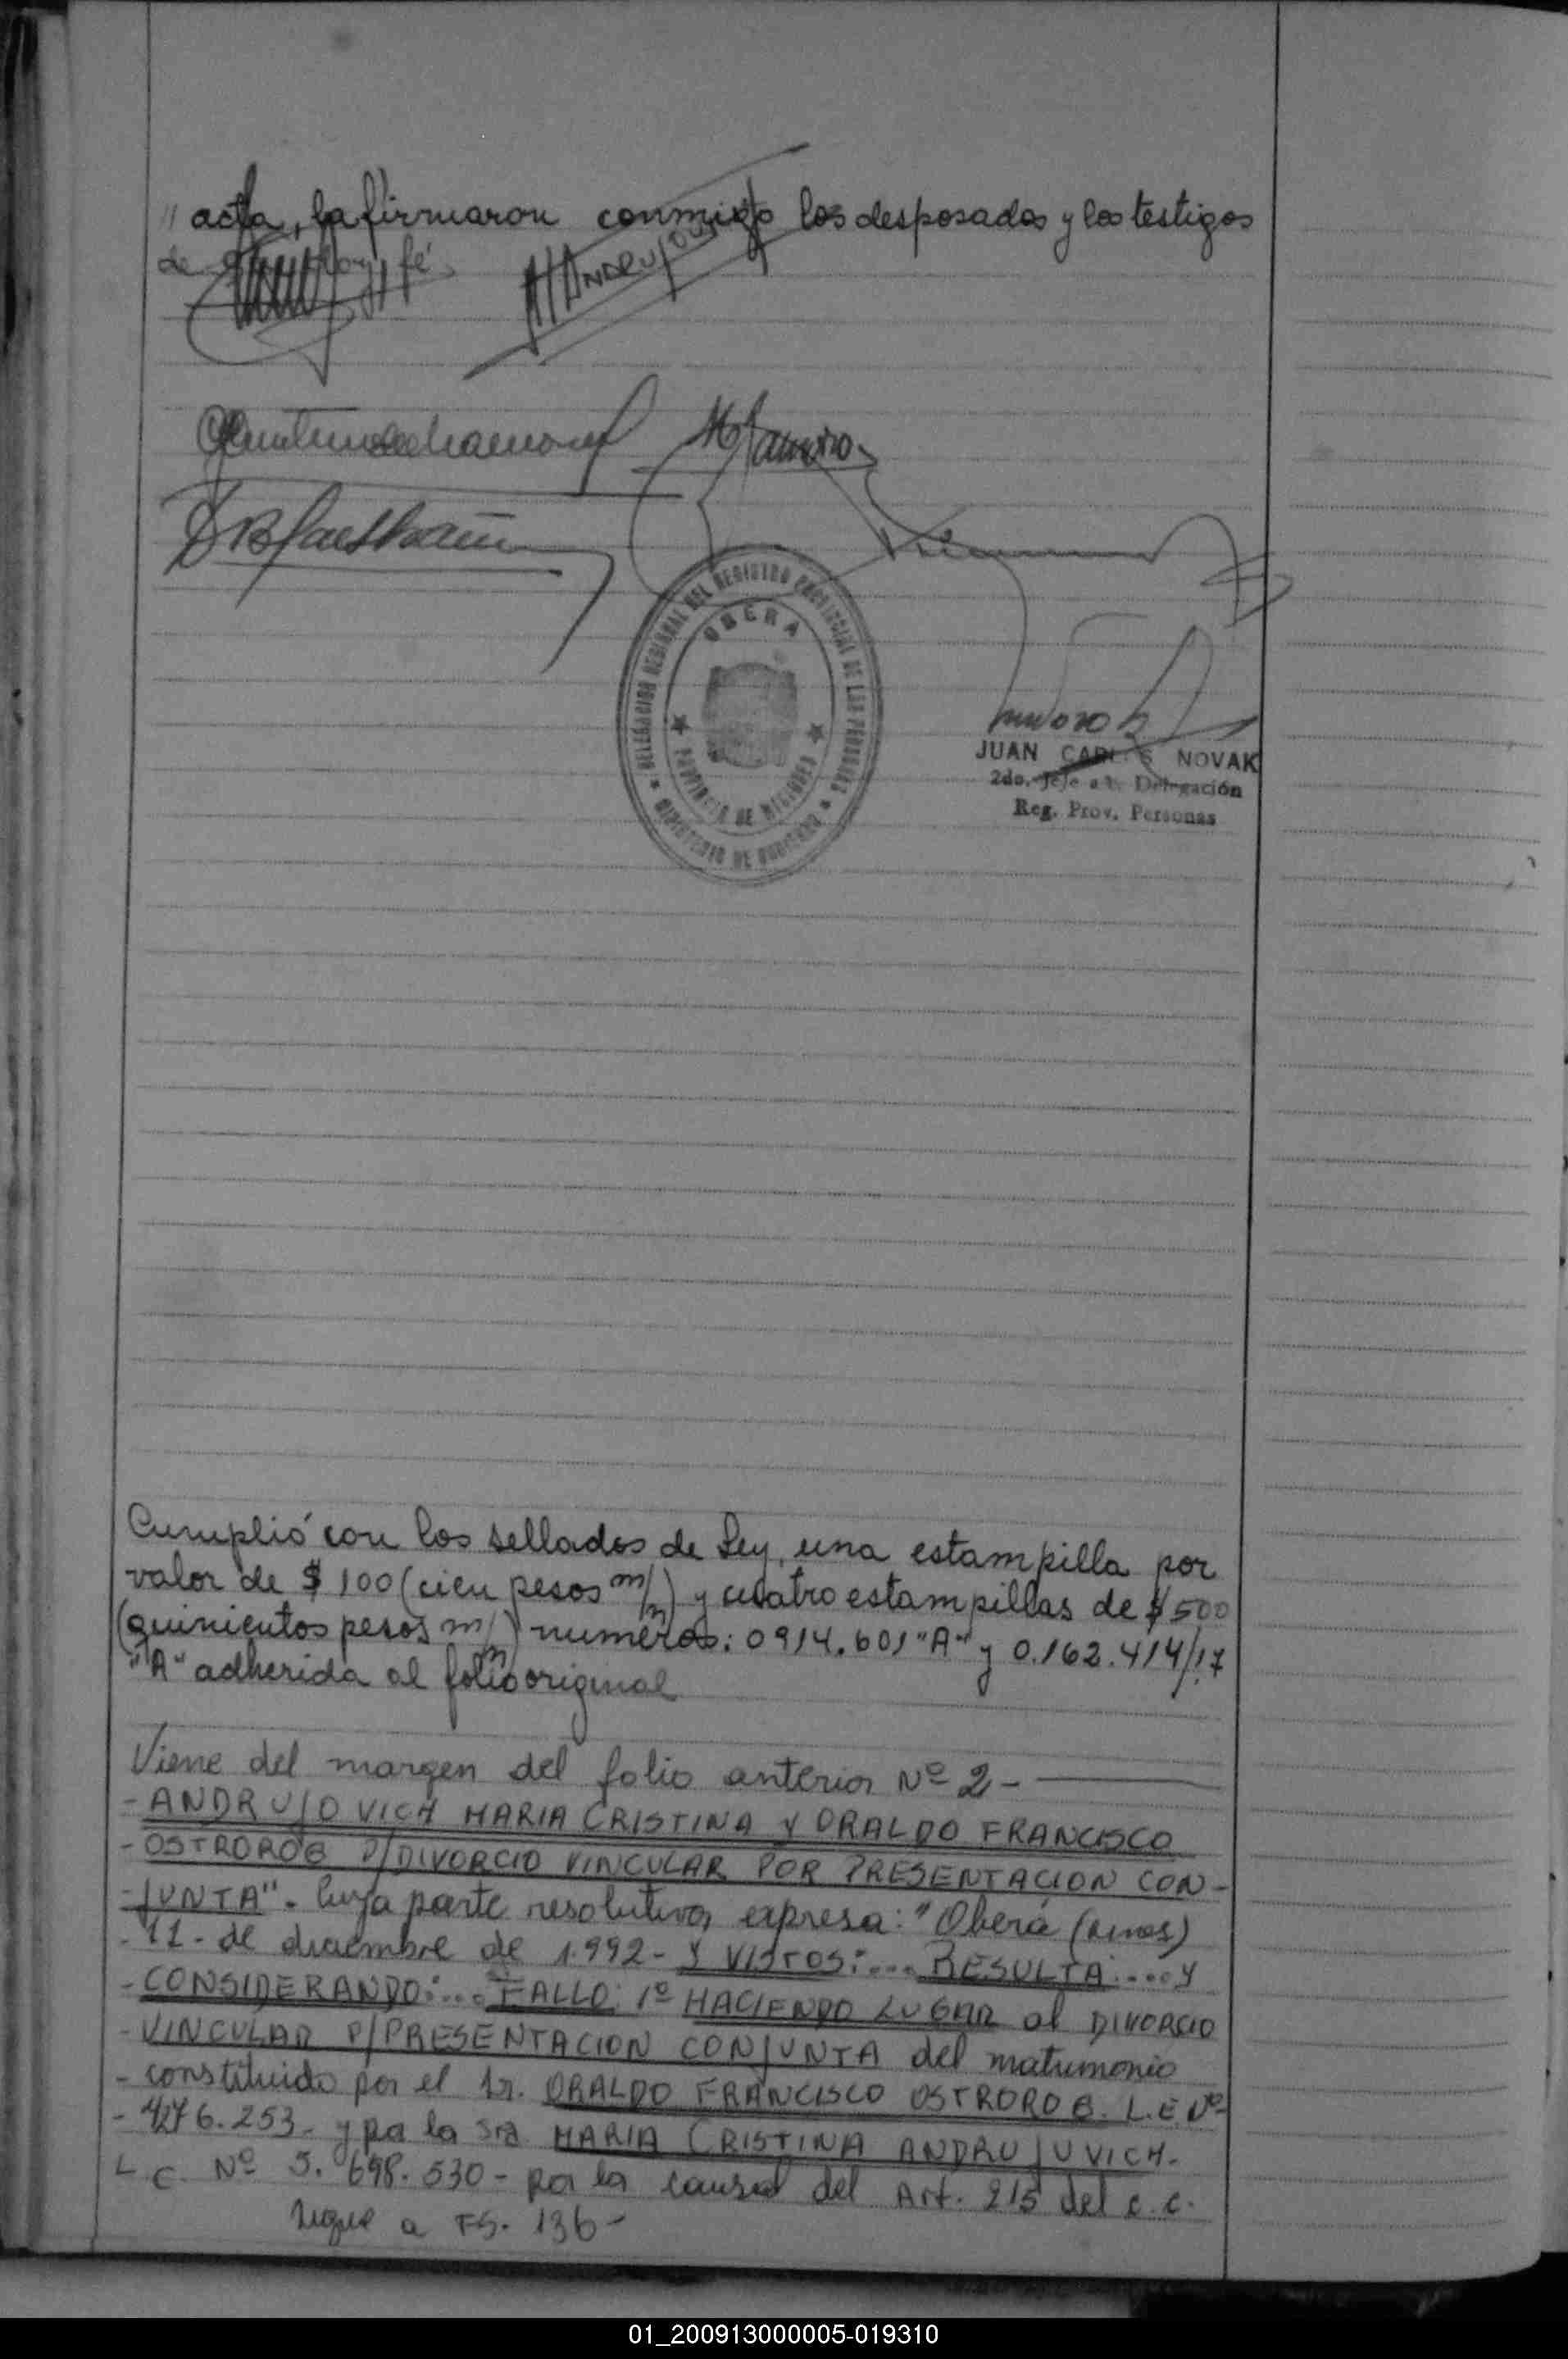 // acta, la firmaron conmigo los desposados y los testigos
de que doy fé
M C ANDRUJOVICH
OBERA
DELEGACION REGIONAL DEL REGISTRO PROVINCIAL DE LAS PERSONAS
PROVINCIA DE MISIONES
MINISTERIO DE GOBIERNO
JUAN CARLOS NOVAK
2do. Jefe a/c. Delegación
Reg. Prov. Personas
Cumplió con los sellados de Ley, una estampilla por
valor de $ 100 (cien pesos m/n) y cuatro estampillas de $ 500
(quinientos pesos m/n) numeros: 0914.601 "A" y 0.162.414/17
"A" adherida al folio original
Viene del margen del folio anterior Nº 2-
- ANDRUJOVICH MARIA CRISTINA Y ORALDO FRANCISCO
- OSTROROG P/DIVORCIO VINCULAR POR PRESENTACION CON-
- JUNTA". Cuya parte resolutiva, expresa: "Oberá (Mnes)
- 11- de diciembre de 1.992- Y VISTOS:... RESULTA:.... Y
- CONSIDERANDO:... FALLO: 1º HACIENDO LUGAR al DIVORCIO
- VINCULAR P/PRESENTACION CONJUNTA del matrimonio
- constituido por el Sr. ORALDO FRANCISCO OSTROROG. L.E Nº
- 7.276.253- y por la Sra MARIA CRISTINA ANDRUJUVICH.
L. C. Nº 5.698.530- por la causal del Art. 215 del c. c.
Sigue a FS. 136-
01_200913000005-019310